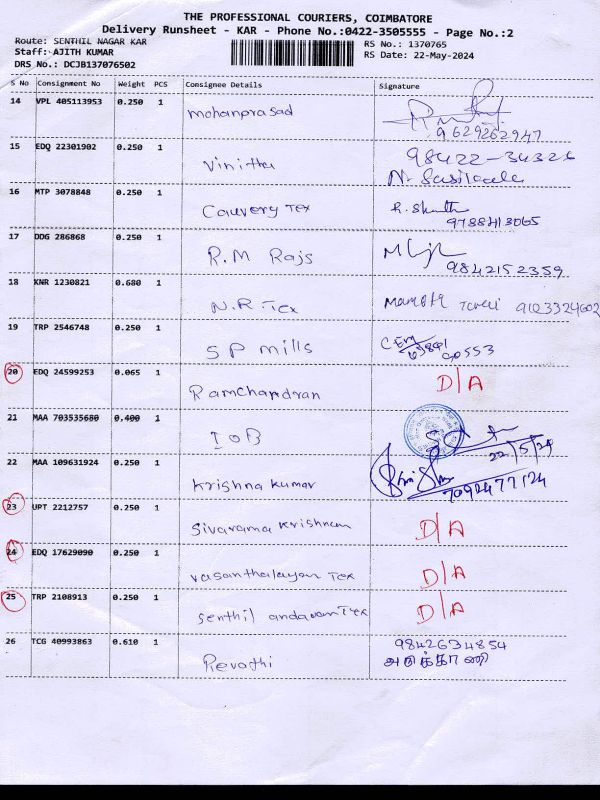 THE PROFESSIONAL COURIERS, COIMBATORE
Delivery Runsheet - KAR - Phone No.:0422-3505555 - Page No.:2
Route: SENTHIL NAGAR KAR
RS No.: 1370765
Staff: AJITH KUMAR
RS Date: 22-May-2024
DRS No.: DCJB137076502
S No Consignment No Weight PCS Consignee Details Signature
14 VPL 405113953 0.250 1 mohanprasad
9629262947
15 EDQ 22301902 0.250 1 Vinitha 98422-34326
16 MTP 3078848 0.250 1 Cauvery Tex
9788413065
17 DDG 286868 0.250 1 R.M Rajs
9842152359
18 KNR 1230821 0.680 1 N.R.Tex
19 TRP 2546748 0.250 1 SP mills
20 EDQ 24599253 0.065 1 Ramchandran D/A
21 MAA 703535680 0.400 1 IOB
22/5/24
22 MAA 109631924 0.250 1 Krishna kumar
7092477124
23 UPT 2212757 0.250 1 Sivarama Krishnan D/A
24 EDQ 17629090 0.250 1 vasanthalayam Tex D/A
25 TRP 2108913 0.250 1 senthil andavam Tex D/A
26 TCG 40993863 0.610 1 Revathi 9842634854